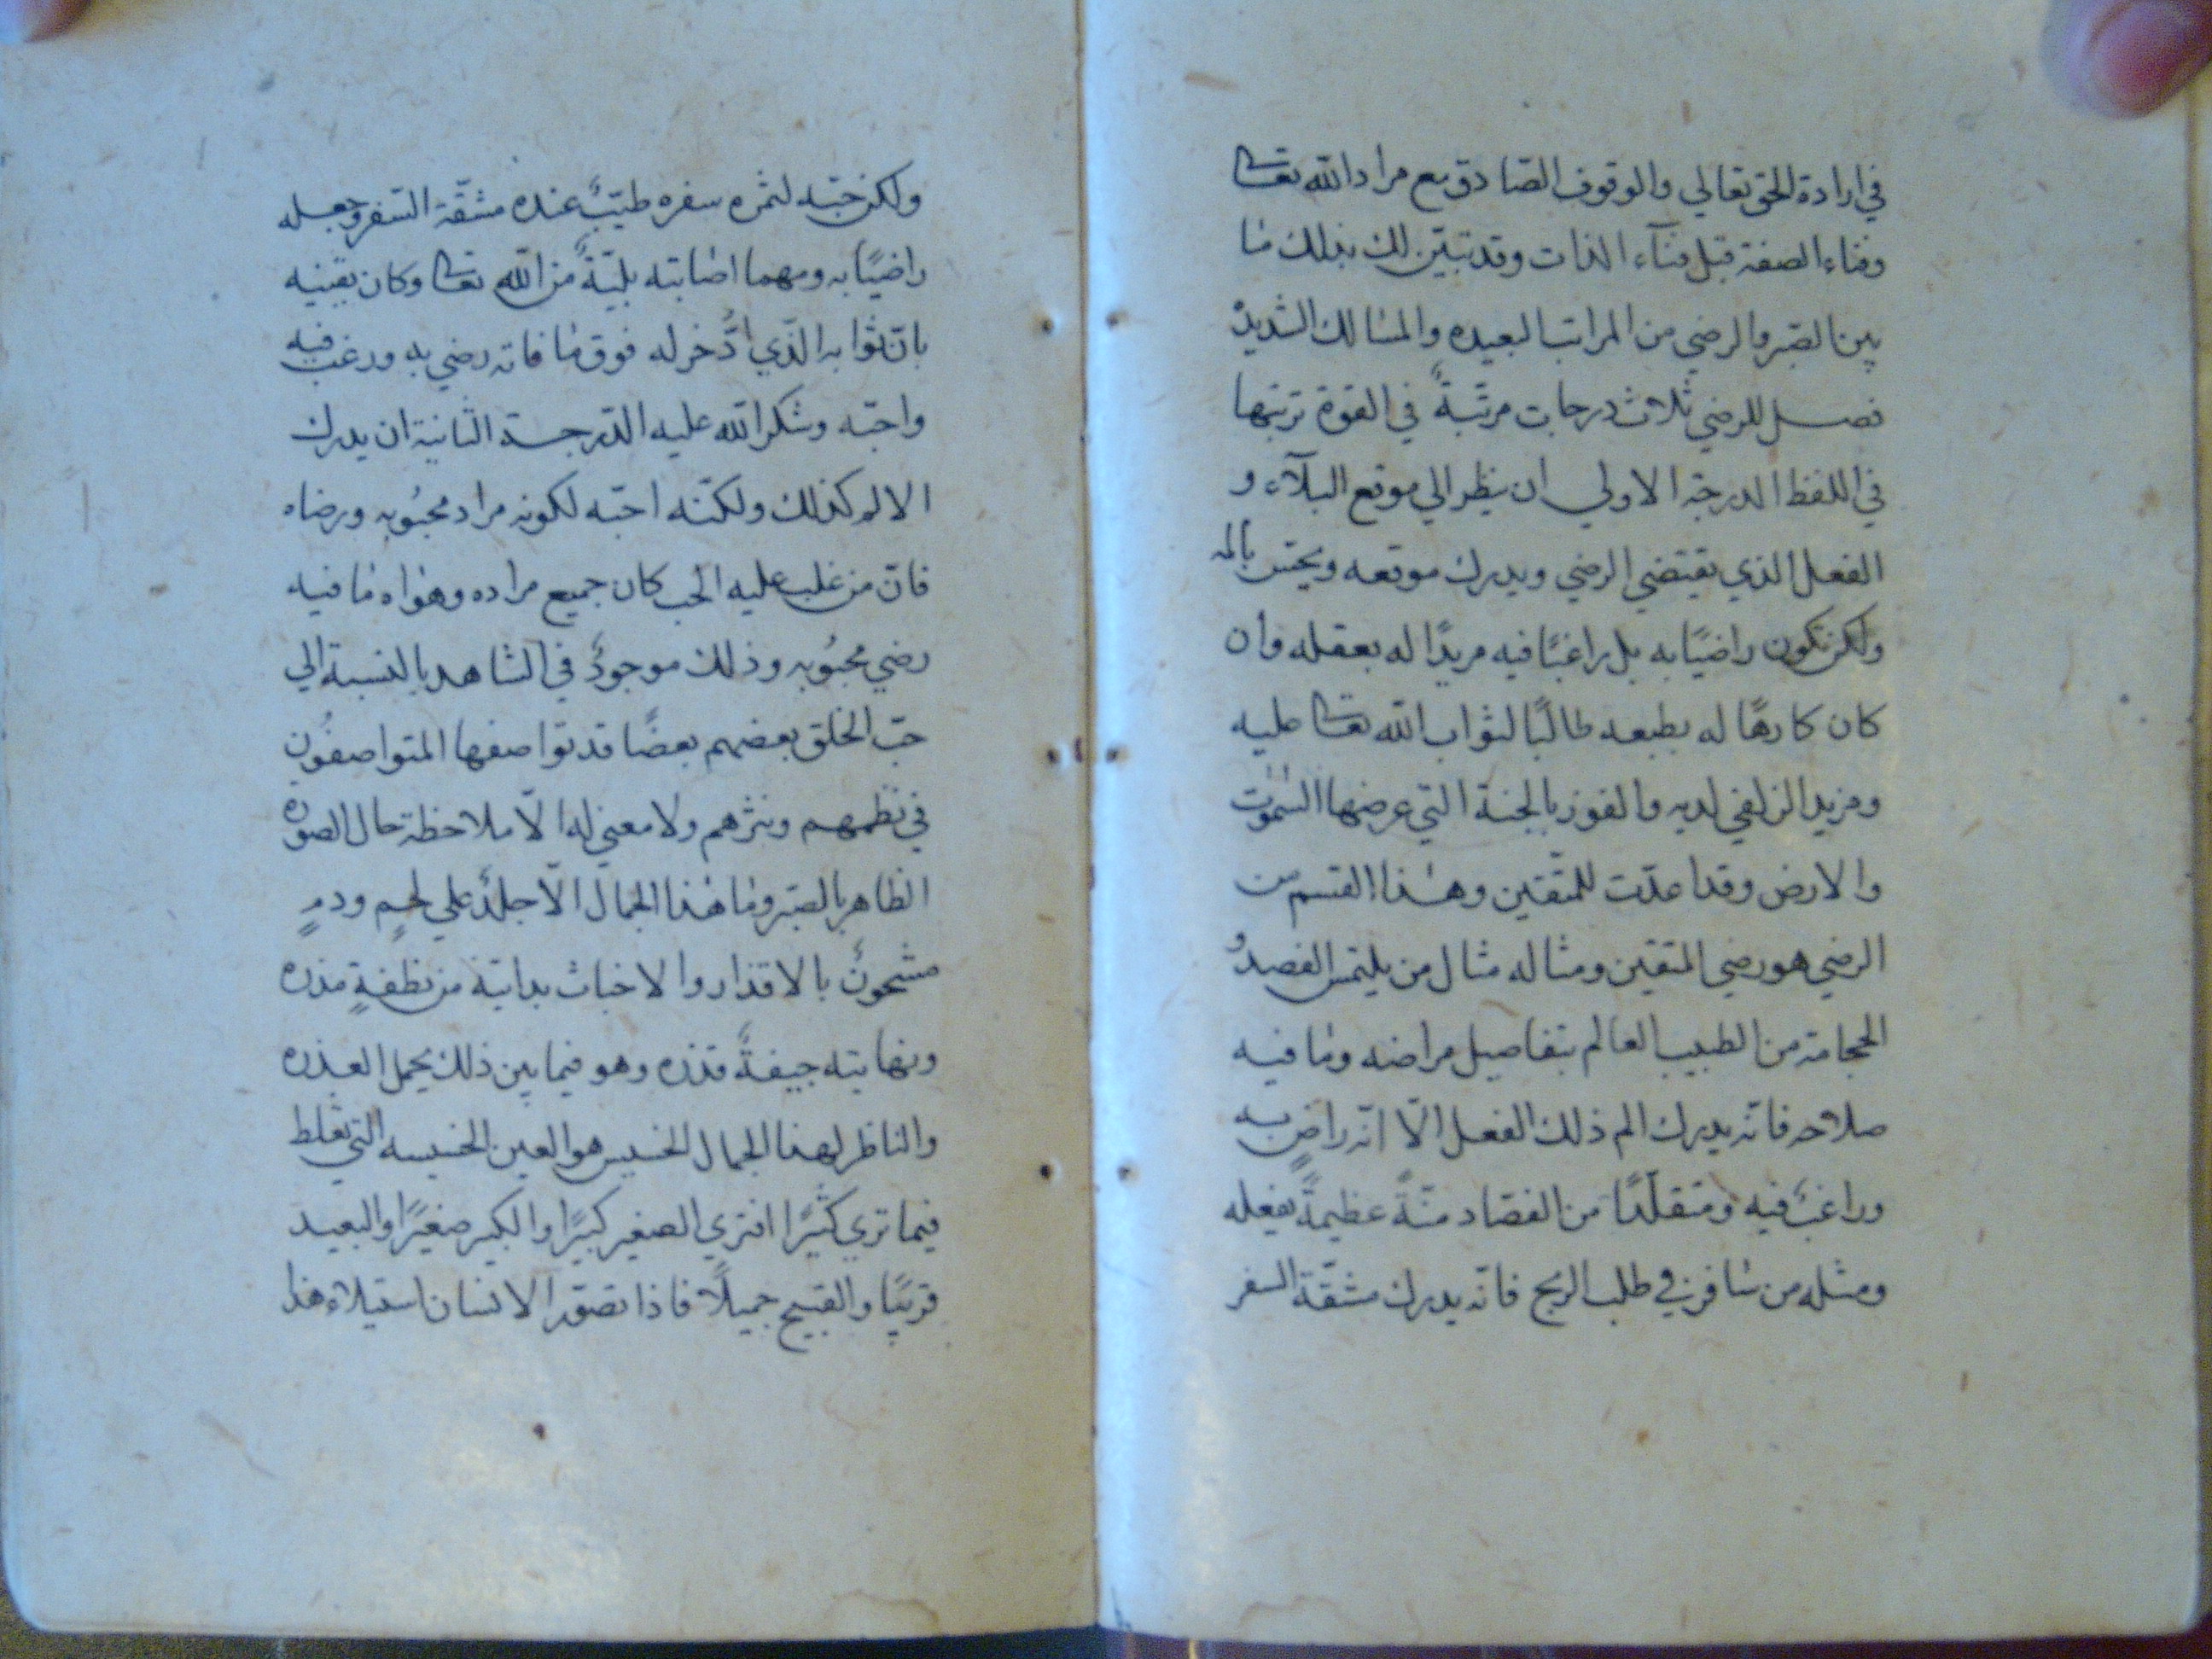 في ارادة الحق تعالي والوقوف الصادق مع مراد الله تعا
وفناء الصفة قبل فنآء الذات وقد تبيّن لك بذلك مٰا
بين الصّبر والرضي من المراتب البعيده والمسٰالك الشديدة
فصل للرضي ثلاث درجات مرتّبةً في القوة ترتبها
في اللفظ الدرجة الاولي ان ينظر الي موقع البلآء و
الفعل الذي يقتضي الرضي ويدرك موقعه ويحسّ بالمه
ولكن تكون راضيًا به بل راغبًا فيه مريدًا له بعقله وان
كان كارهًا له بطبعه طالبًا لثواب الله تعا عليه
ومزيد الزلفي لديه والفوز بالجنة التي عرضها السّمٰوٰت
والارض وقد اعدّت للمتّقين وهٰذا القسم من
الرضي هو رضي المتقين ومثاله مثال من يلتمس الفصد و
الحجامة من الطبيب العالم بتفاصيل مراضه ومٰا فيه
صلاحه فانّه يدرك الم ذلك الفعل الّا انّه راضٍ به
وراغبٌ فيه ومتقلّدًا من الفصّاد منّةً عظيمةً بفعله
ومثله من سٰافر في طلب الربح فانّه يدرك مشقّة السفر
ولكن حبّه لثمره سفره طيّبٌ عنده مشقّة السّفر وجعله
راضيًا به ومهما اصٰابته بليّةٌ من الله تعا وكان يقينه
بانّ ثوٰابه الّذي ادُّخر له فوق مٰا فاته رضي به ورغب فيه
واحبّه وشكر الله عليه الدّرجة الثانية ان يدرك
الالم كذلك ولكنّه احبّه لكونه مراد محبُوبه ورضاه
فانّ من غلب عليه الحب كان جميع مراده وهوٰاه مٰا فيه
رضي محبُوبه وذلك موجودٌ في الشاهد بالنسبة الي
حبّ الخلق بعضهم بعضًا قد توٰاصفها المتواصفُون
في نظمهم ونثرهم ولا معني له الّا ملاحظة حال الصوره
الظاهر بالصّبر ومٰا هٰذا الجمال الّا جلدٌ علي لحمٍ ودمٍ
مشحونٌ بالاقذار والاخباث بدايته من نطفةٍ مذره
ونهايته جيفةٌ قذره وهو فيما بين ذلك يحمل العذره
والناظر لهذا الجمال الخسيس هو العين الخسيسه التي تغلط
فيما تري كثيرًا افتري الصغير كبيرًا والكبير صغيرًا والبعيد
قريبًا والقبيح جميلًا فاذا تصوّر الانسان استيلاء هذا